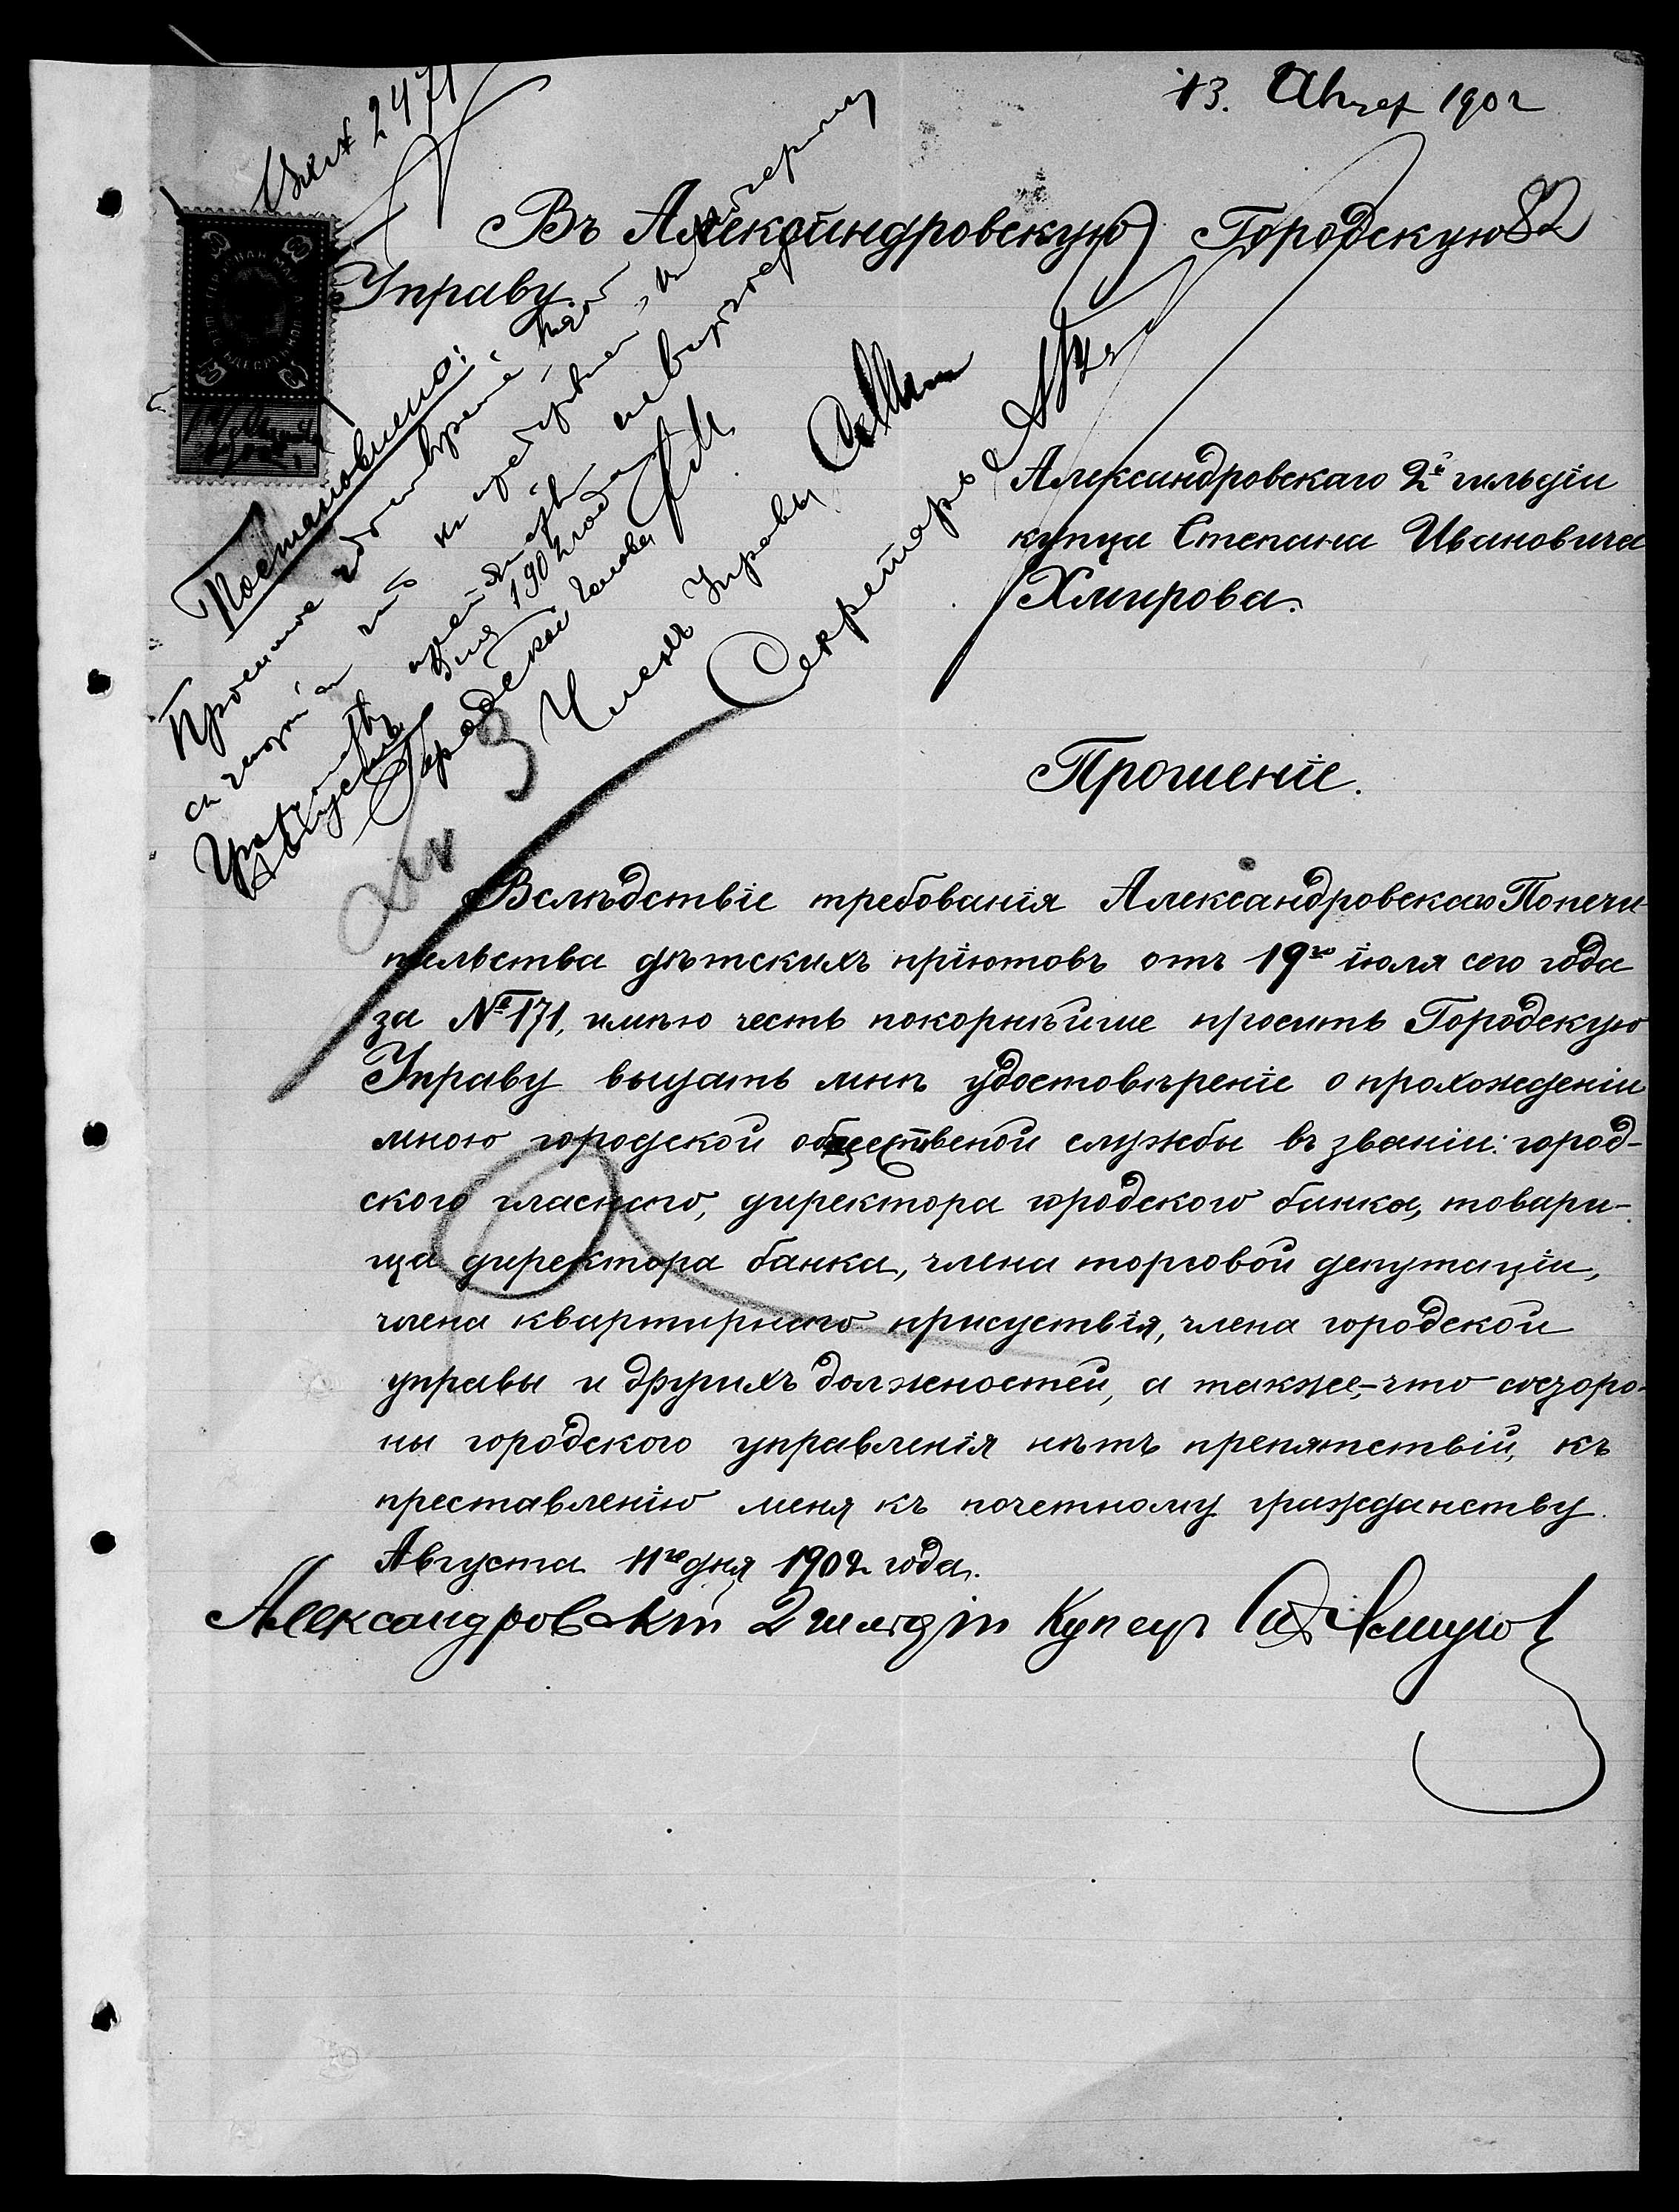 13. Август 1902
Вх № 2471
82
Въ Александровскую Городскую
Управу.
Александровскаго 2й гильдіи
купца Степана Ивановича
Хмирова.
Постановлено:
Прошение удовлетворить
1902 года
Городской Голова
Членъ Управы
Секретарь
Прошеніе.
Вслѣдствіе требованія Александровскаго Попечи-
тельства дѣтскихъ пріютовъ отъ 19го іюля сего года
за № 171, имѣю честь покорнѣйше просить Городскую
Управу выдать мнѣ удостовѣреніе о прохожденіи
мною городской общественой службы въ званіи: город-
ского гласнаго, директора городского банка, товари-
ща директора банка, члена торговой депутаціи,
члена квартирнаго присуствія, члена городской
управы и другихъ должностей, а также,-что состоро-
ны городского управленія нѣтъ препятствій, къ
преставленію меня къ почетному гражданству.
Августа 11го дня 1902 года.
Александровскій 2 гильдіи Купецъ